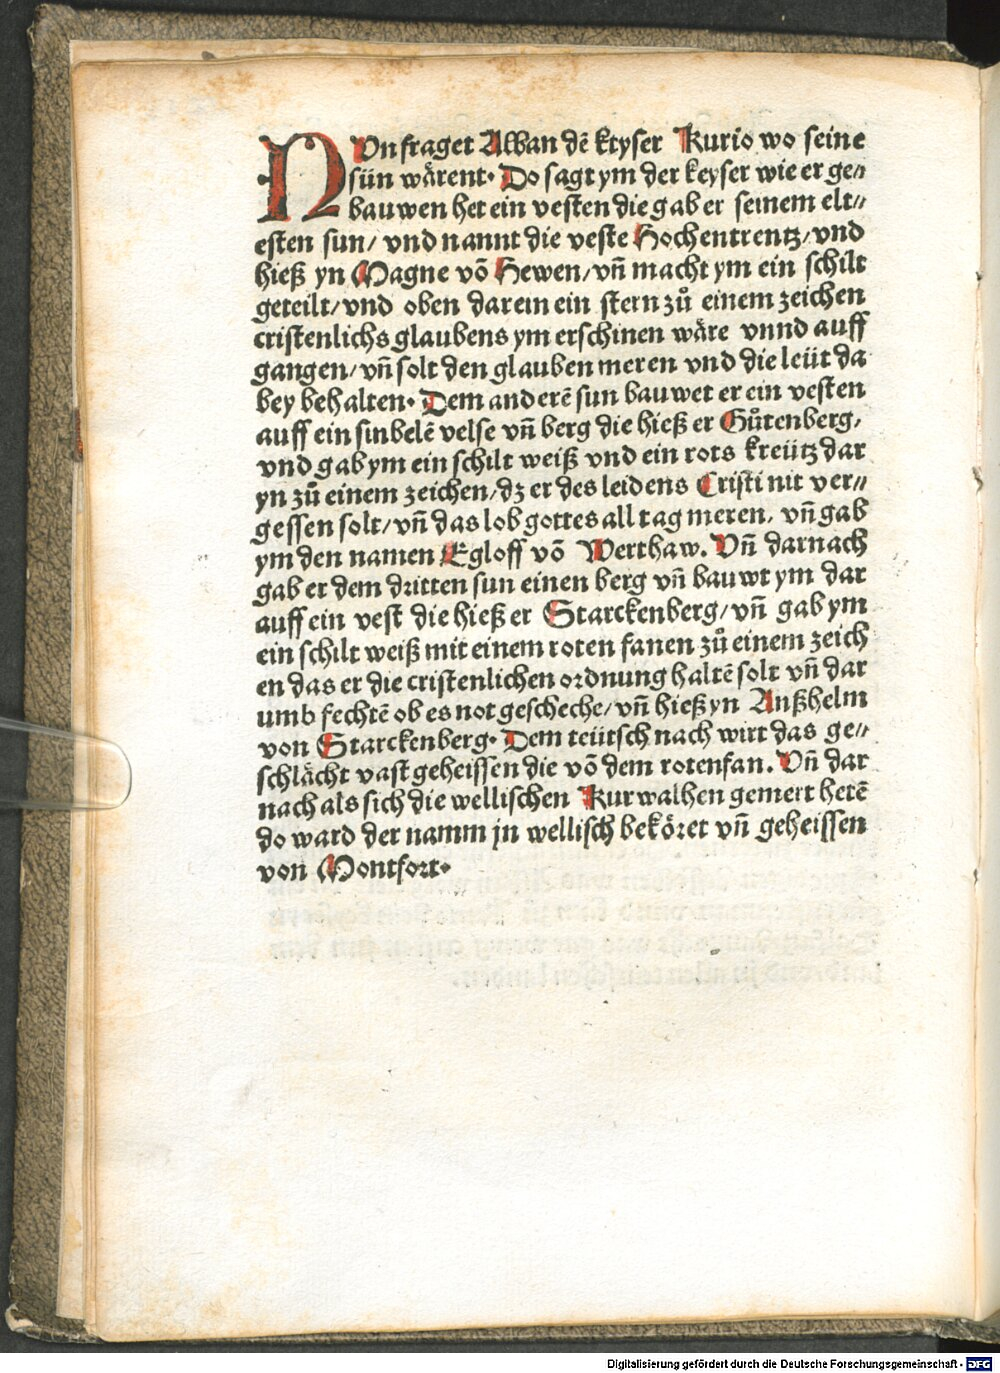 NVn fraget Alban dē keyser Kurio wo seine
sün wårent. Do sagt ym der keyser wie er ge⸗
bauwen het ein vesten die gab er seinem elt⸗
esten sun/ vnd nannt die veste Hochentrentz/vnd
hieß yn Magne vō Hewen/vn̄ macht ym ein schilt
geteilt/vnd oben darein ein stern zů einem zeichen
cristenlichs glaubens ym erschinen wåre vnnd auff
gangen/vn̄ solt den glauben meren vnd die leüt da
bey behalten. Dem anderē sun bauwet er ein vesten
auff ein sinbelē velse vn̄ berg die hieß er Gůtenberg,
vnd gab ym ein schilt weiß vnd ein rots kreütz dar
yn zů einem zeichen/dz er des leidens Cristi nit ver⸗
gessen solt/vn̄ das lob gottes all tag meren, vn̄ gab
ym den namen Egloff vō Werthaw. Vn̄ darnach
gab er dem dritten sun einen berg vn̄ bauwt ym dar
auff ein vest die hieß er Starckenberg/vn̄ gab ym
ein schilt weiß mit einem roten fanen zů einem zeich
en das er die cristenlichen ordnung haltē solt vn̄ dar
umb fechtē ob es not gescheche/vn̄ hieß yn Anßhelm
von Starckenberg. Dem teütsch nach wirt das ge⸗
schlåcht vast geheissen die vō dem rotenfan. Vn̄ dar
nach als sich die wellischen Kurwalhen gemert hetē
do ward der namm jn wellisch bekõret vn̄ geheissen
von Montfort.
Digitalisierung gefördert durch die Deutsche Forschungsgemeinschaft - DFG